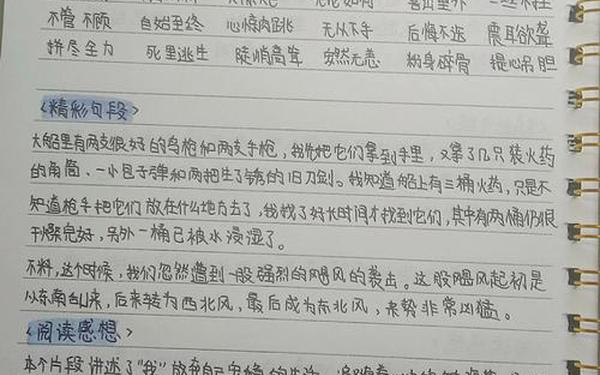 不管不顾 自始至终 心惊肉跳 无从下手 后悔不迭 震耳欲聋
拼尽全力 死里逃生 陡峭高耸 安然无恙 粉身碎骨 提心吊胆
<精彩句段>
大船里有两支很好的鸟枪和两支手枪,我先把它们拿到手里,又拿了几只装火药
的角筒、一小包子弹和两把生了锈的旧刀剑。我知道船上有三桶火药,只是不
知道枪手把它们放在什么地方去了,我找了好长时间才找到它们,其中有两桶仍很
干燥完好,另外一桶已被水浸湿了。
不料,这个时候,我们忽然遭到一股强烈的飓风的袭击。这股飓风起初是
从东南刮来,后来转为西北风,最后成为东北风,来势非常凶猛。
<阅读感想>
本个片段讲述了“我”放弃自己安稳的生活